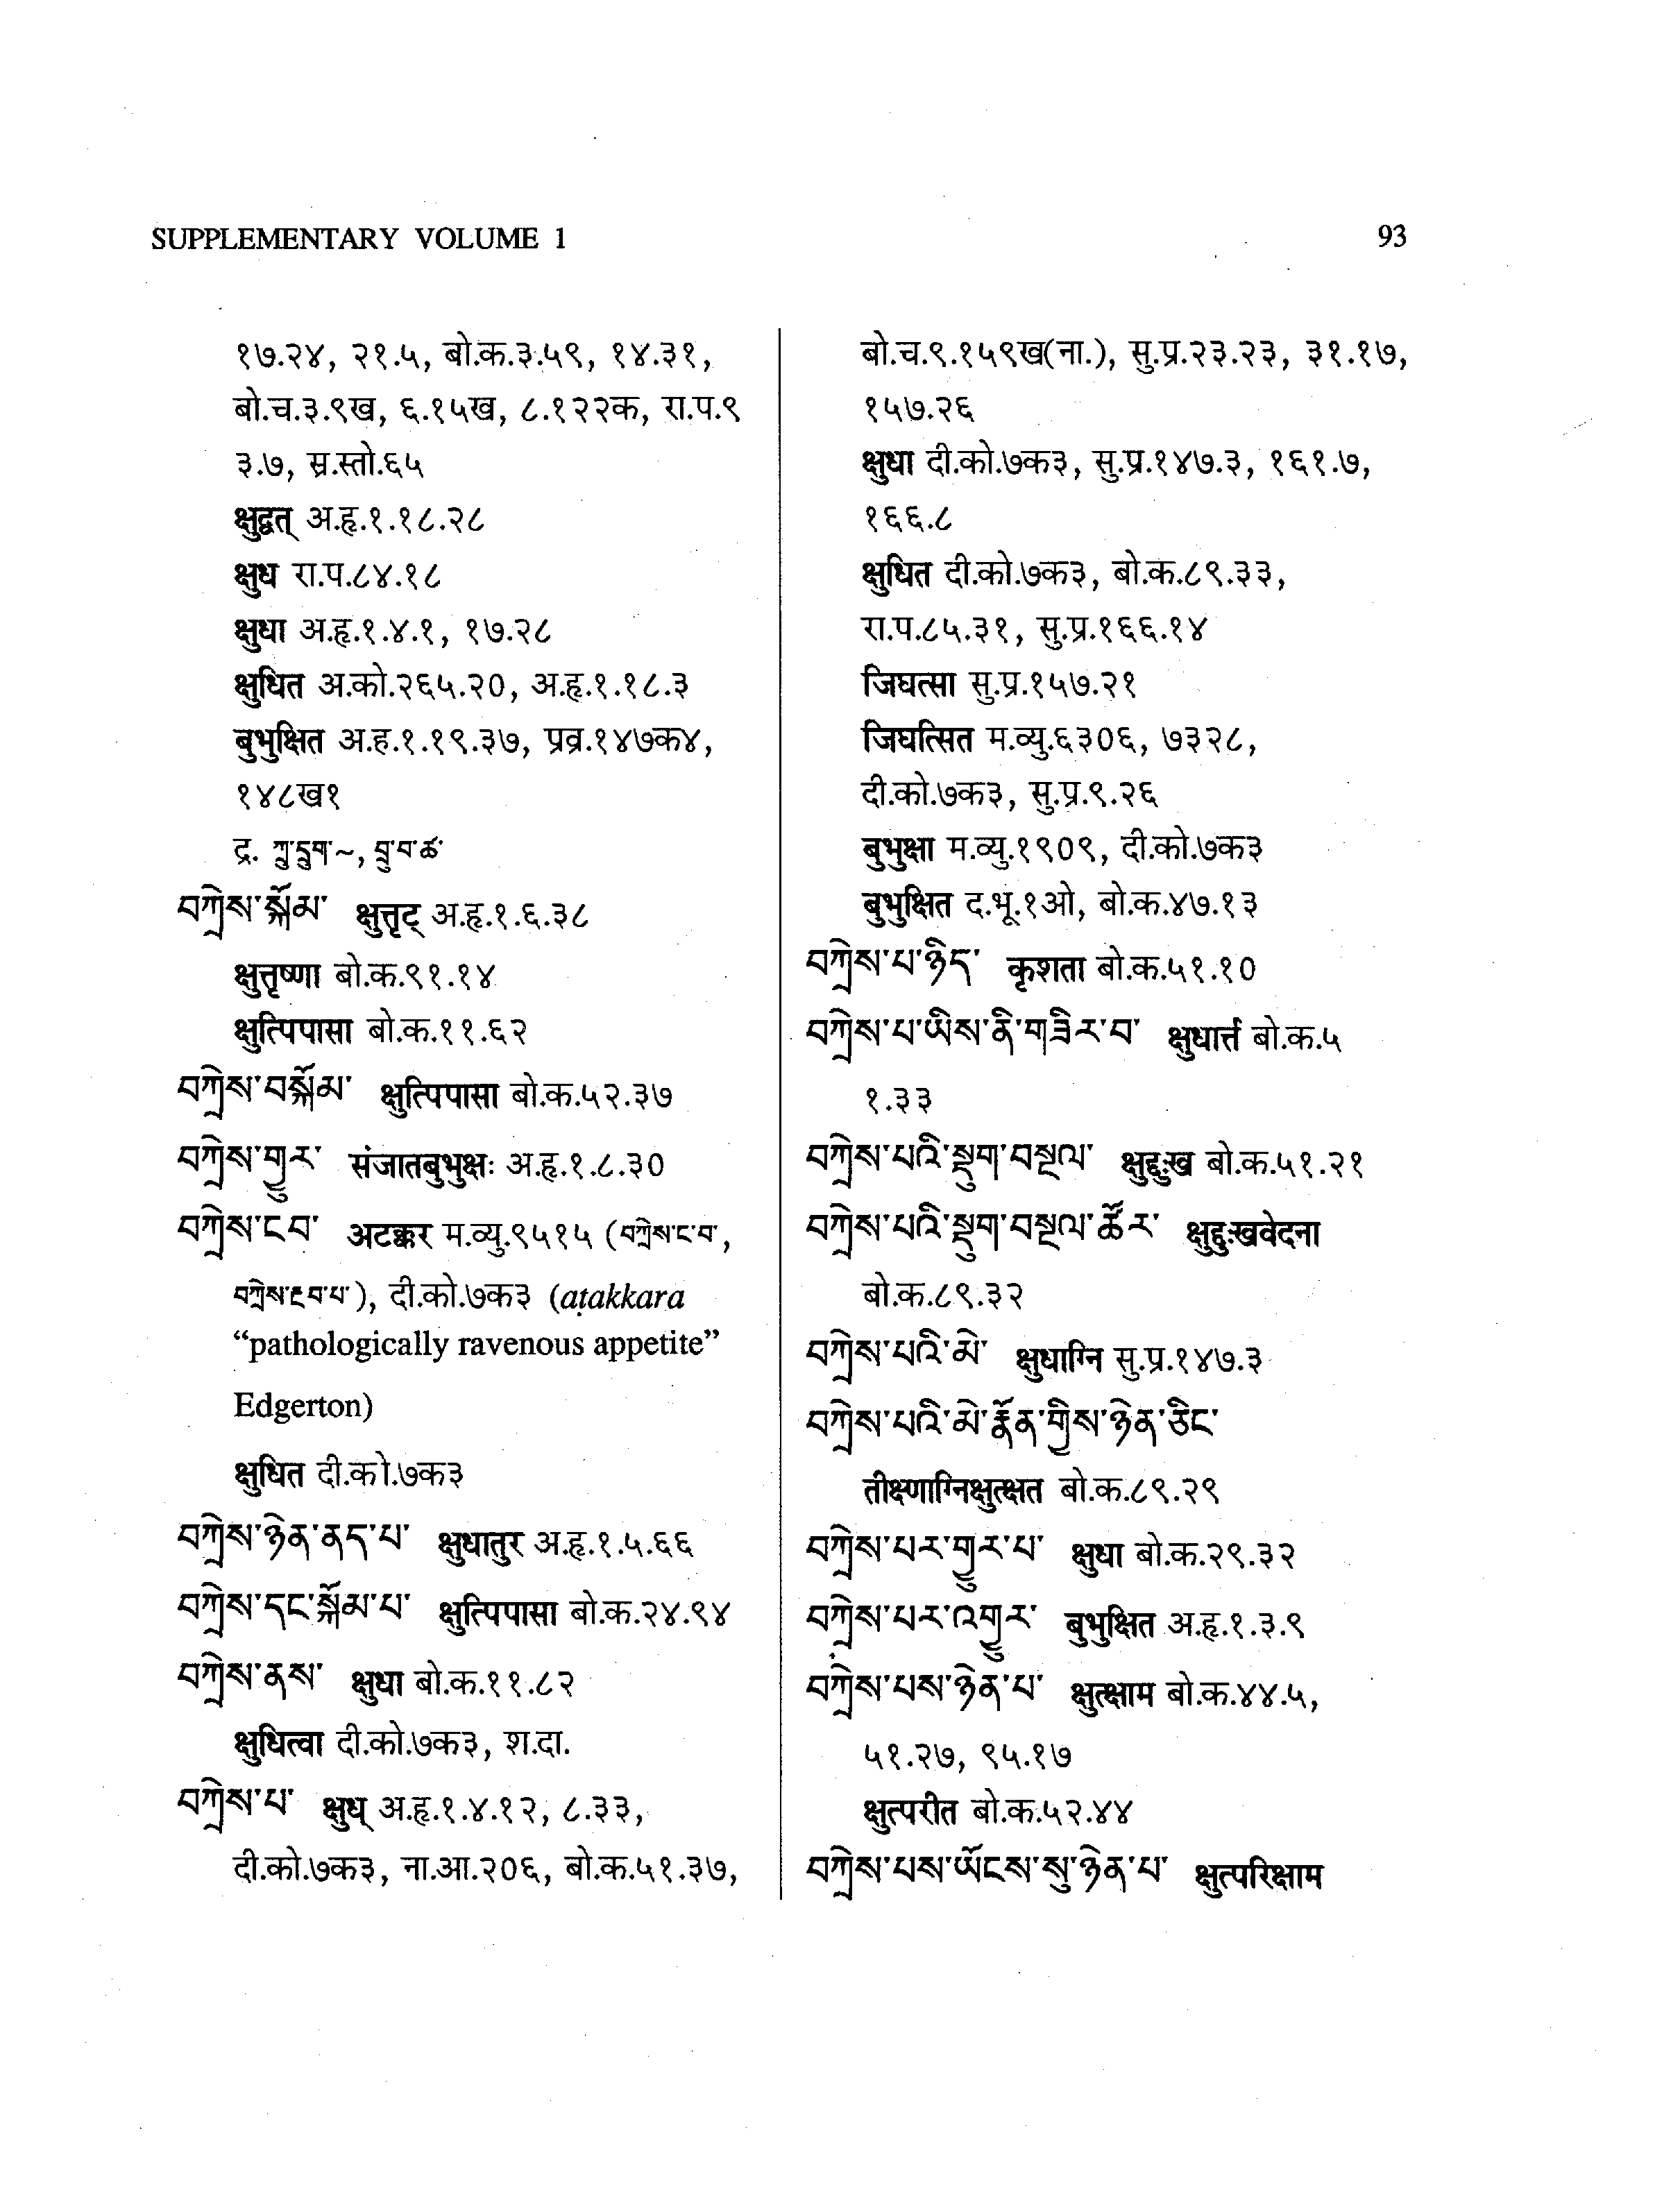 SUPPLEMENTARY VOLUME 1
93
१७.२४, २१.५, बो.क.३.५९, १४.३१,
बो.च.३.९ख, ६.१५ख, ८.१२२क, रा.प.९
३.७, स्र.स्तो.६५
क्षुद्वत् अ.हृ.१.१८.२८
क्षुध रा.प.८४.१८
क्षुधा अ.हृ.१.४.१, १७.२८
क्षुधित अ.को.२६५.२०, अ.हृ.१.१८.३
बुभुक्षित अ.ह.१.१९.३७, प्रव्र.१४७क४,
१४८ख१
द्र. ཀྲུ་དྲུག་~, བྲུ་བ་ཚ་
བཀྲེས་སྐོམ་ क्षुत्तृट् अ.हृ.१.६.३८
क्षुत्तृष्णा बो.क.९१.१४
क्षुत्पिपासा बो.क.११.६२
བཀྲེས་བསྐོམ་ क्षुत्पिपासा बो.क.५२.३७
བཀྲེས་གྱུར་ संजातबुभुक्षः अ.हृ.१.८.३०
བཀྲེས་ངབ་ अटक्कर म.व्यु.९५१५ (བཀྲེས་ང་བ་,
བཀྲེས་རྔབ་པ་), दी.को.७क३ (aṭakkara
“pathologically ravenous appetite”
Edgerton)
क्षुधित दी.को.७क३
བཀྲེས་ཉེན་ནད་པ་ क्षुधातुर अ.हृ.१.५.६६
བཀྲེས་དང་སྐོམ་པ་ क्षुत्पिपासा बो.क.२४.९४
བཀྲེས་ནས་ क्षुधा बो.क.११.८२
क्षुधित्वा दी.को.७क३, श.दा.
བཀྲེས་པ་ क्षुध् अ.हृ.१.४.१२, ८.३३,
दी.को.७क३, ना.आ.२०६, बो.क.५१.३७,
बो.च.९.१५९ख(ना.), सु.प्र.२३.२३, ३१.१७,
१५७.२६
क्षुधा दी.को.७क३, सु.प्र.१४७.३, १६१.७,
१६६.८
क्षुधित दी.को.७क३, बो.क.८९.३३,
रा.प.८५.३१, सु.प्र.१६६.१४
जिघत्सा सु.प्र.१५७.२१
जिघत्सित म.व्यु.६३०६, ७३२८,
दी.को.७क३, सु.प्र.९.२६
बुभुक्षा म.व्यु.१९०९, दी.को.७क३
बुभुक्षित द.भू.१ओ, बो.क.४७.१३
བཀྲེས་པ་ཉིད་ कृशता बो.क.५१.१०
བཀྲེས་པ་ཡིས་ནི་གཟིར་བ་ क्षुधार्त्त बो.क.५
१.३३
བཀྲེས་པའི་སྡུག་བསྔལ་ क्षुद्दुःख बो.क.५१.२१
བཀྲེས་པའི་སྡུག་བསྔལ་ཚོར་ क्षुद्दुःखवेदना
बो.क.८९.३२
བཀྲེས་པའི་མེ་ क्षुधाग्नि सु.प्र.१४७.३
བཀྲེས་པའི་མེ་རྣོན་གྱིས་ཉེན་ཅིང་
तीक्ष्णाग्निक्षुत्क्षत बो.क.८९.२९
བཀྲེས་པར་གྱུར་པ་ क्षुधा बो.क.२९.३२
བཀྲེས་པར་འགྱུར་ बुभुक्षित अ.हृ.१.३.९
བཀྲེས་པས་ཉེན་པ་ क्षुत्क्षाम बो.क.४४.५,
५१.२७, ९५.१७
क्षुत्परीत बो.क.५२.४४
བཀྲེས་པས་ཡོངས་སུ་ཉེན་པ་ क्षुत्परिक्षाम